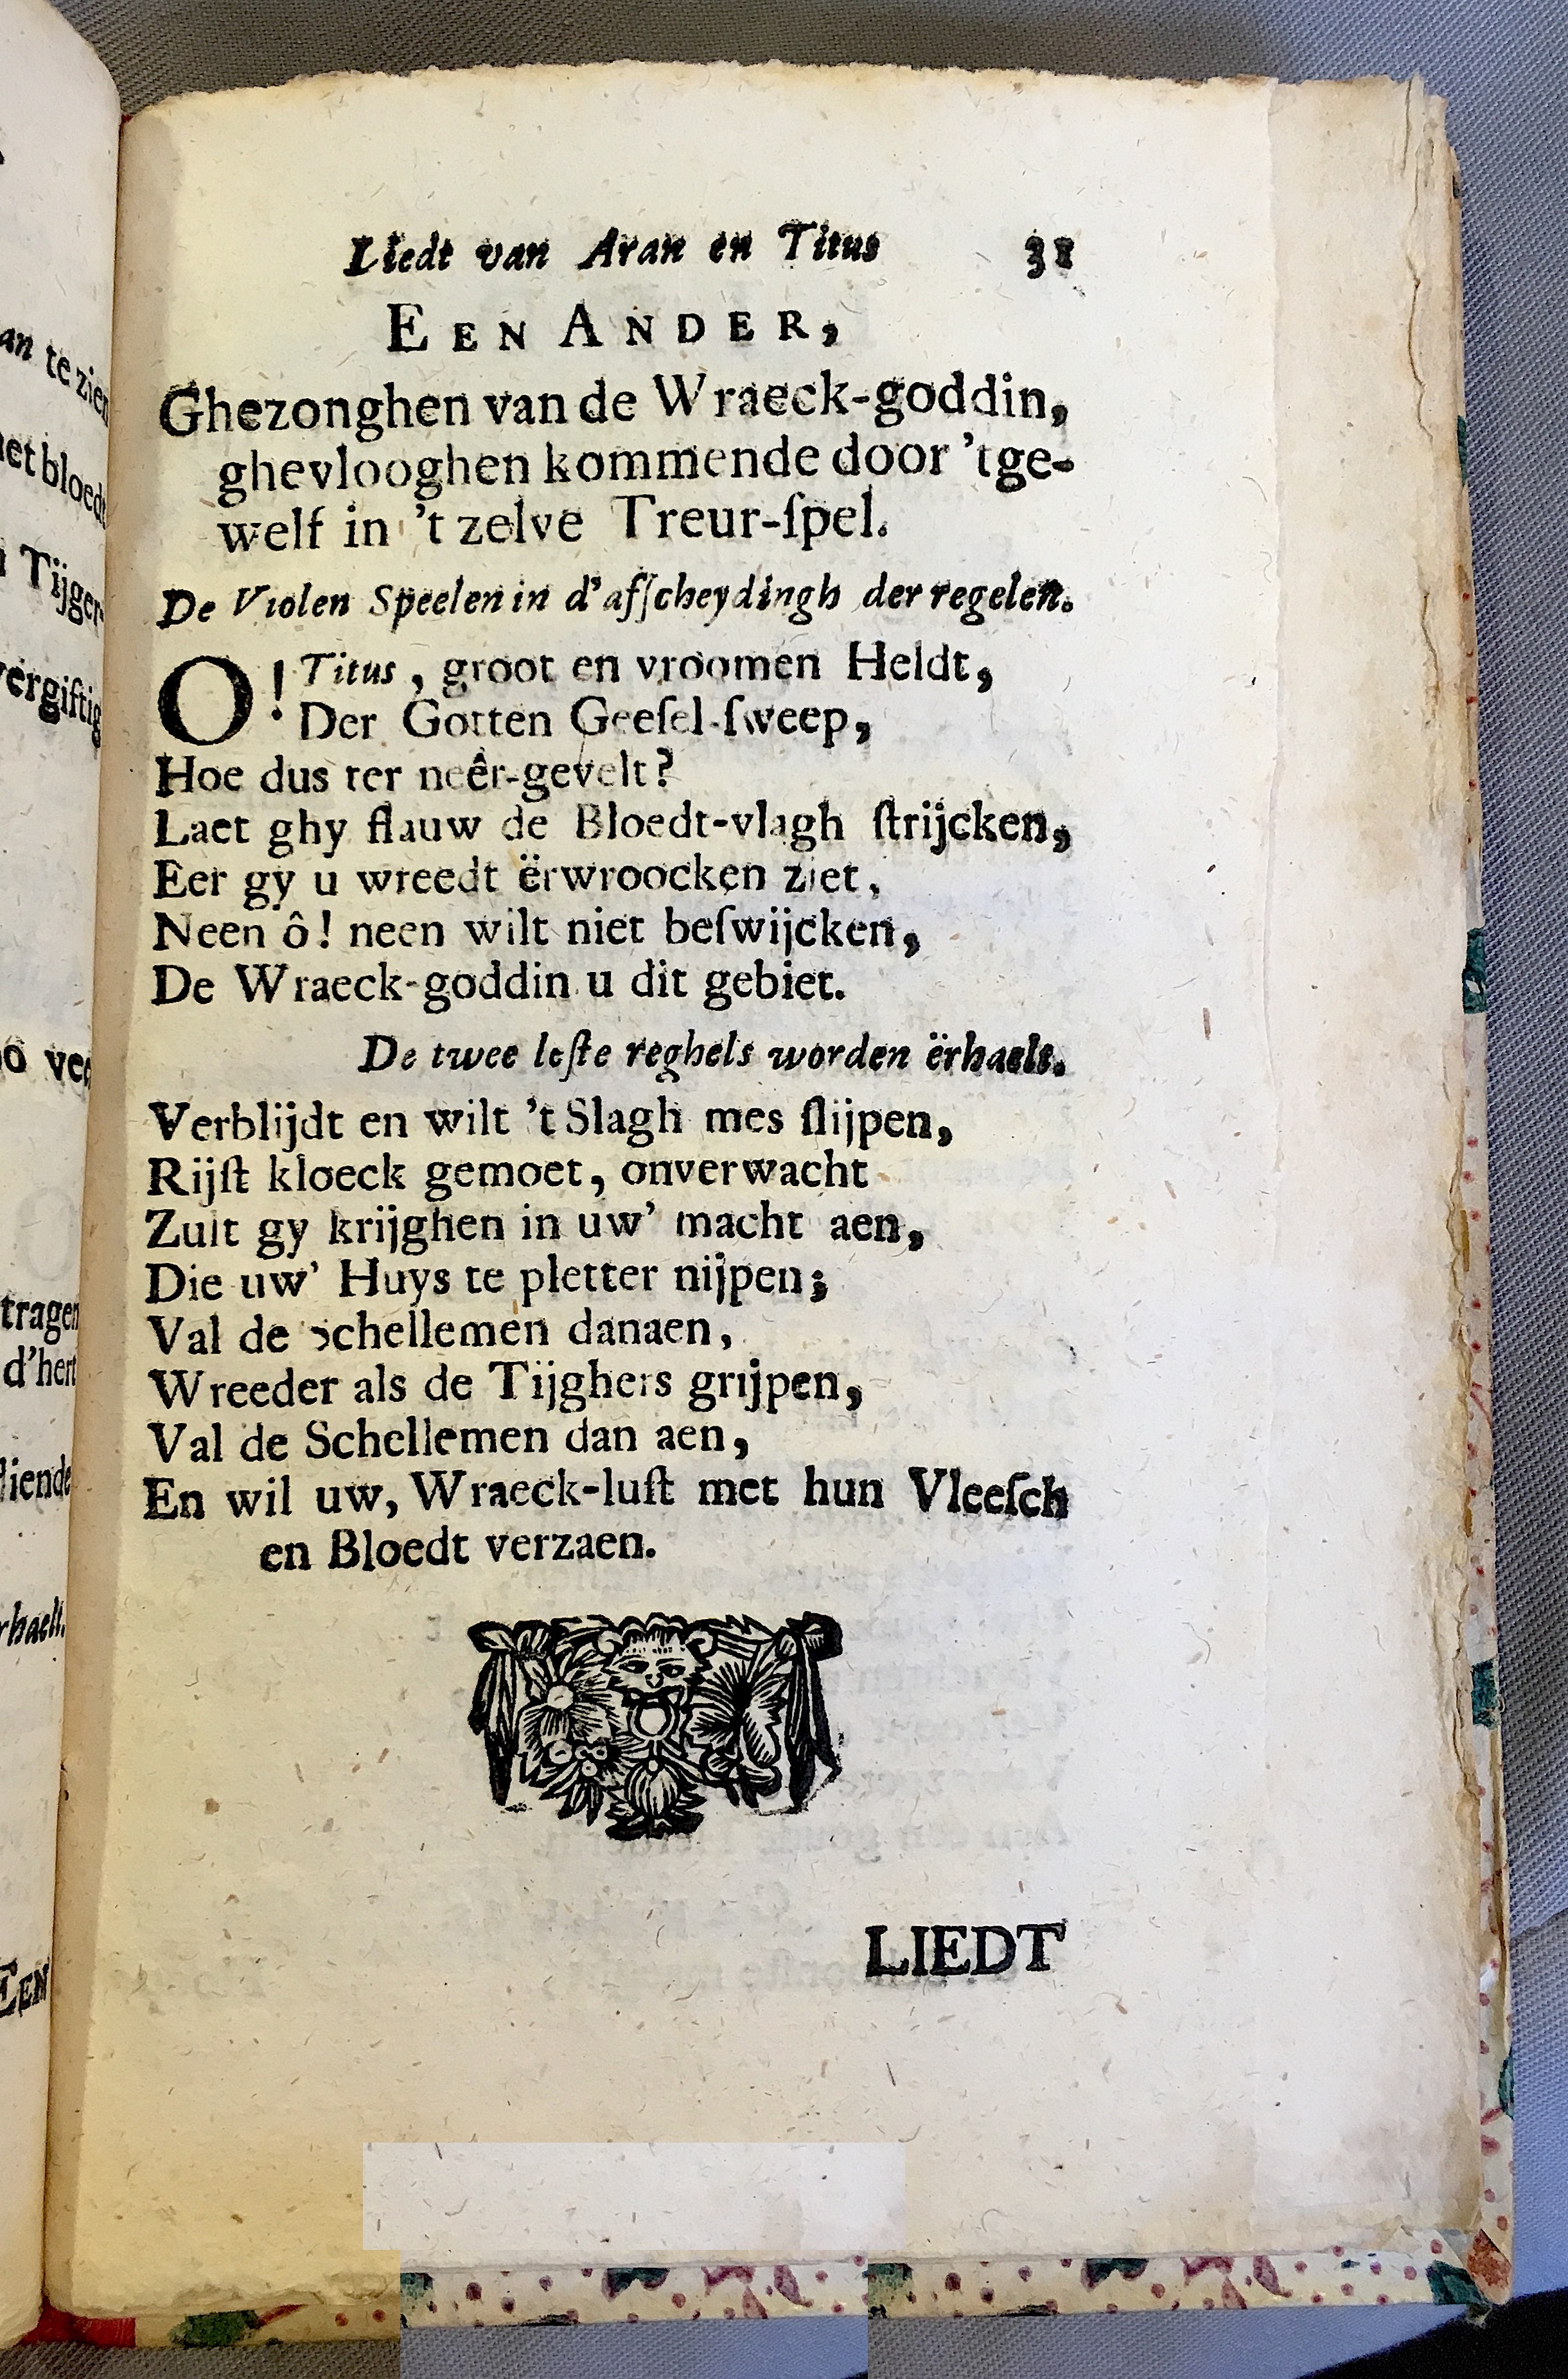 Liedt van Aran en Titus 38
EEN ANDER,
Ghezonghen van de Wraeck-goddin,
ghevlooghen kommende door 'tge-
welf in 't zelve Treur-ſpel.
De Violen Speelen in d'afſcheydingh der regelen.
O! Titus, groot en vroomen Heldt,
Der Gotten Geeſel-ſweep,
Hoe dus ter neêr-gevelt?
Laet ghy flauw de Bloedt-vlagh ſtrijcken,
Eer gy u wreedt ërwroocken ziet,
Neen ô! neen wilt niet beſwijcken,
De Wraeck-goddin u dit gebiet.
De twee leſte reghels worden ërhaelt.
Verblijdt en wilt 't Slagh mes ſlijpen,
Rijſt kloeck gemoet, onverwacht
Zult gy krijghen in uw' macht aen,
Die uw' Huys te pletter nijpen;
Val de Schellemen danaen,
Wreeder als de Tijghers grijpen,
Val de Schellemen dan aen,
En wil uw, Wraeck-luſt met hun Vleeſch
en Bloedt verzaen.
LIEDT
an te zien
et bloedt
Tijger-
vergiftig
tragen
d'hert
EEN